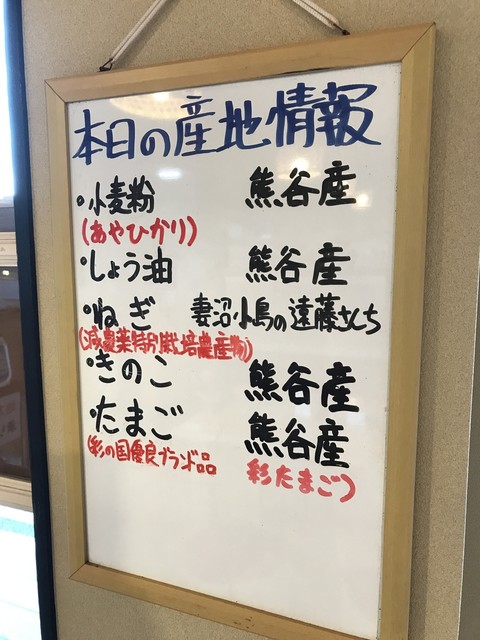 本日の産地情報
・小麦粉 熊谷産
(あやひかり)
・しょう油 熊谷産
・ねぎ 妻沼小島の遠藤さんち
(減農薬特別栽培農産物)
・きのこ 熊谷産
・たまご 熊谷産
(彩の国優良ブランド品 彩たまご)